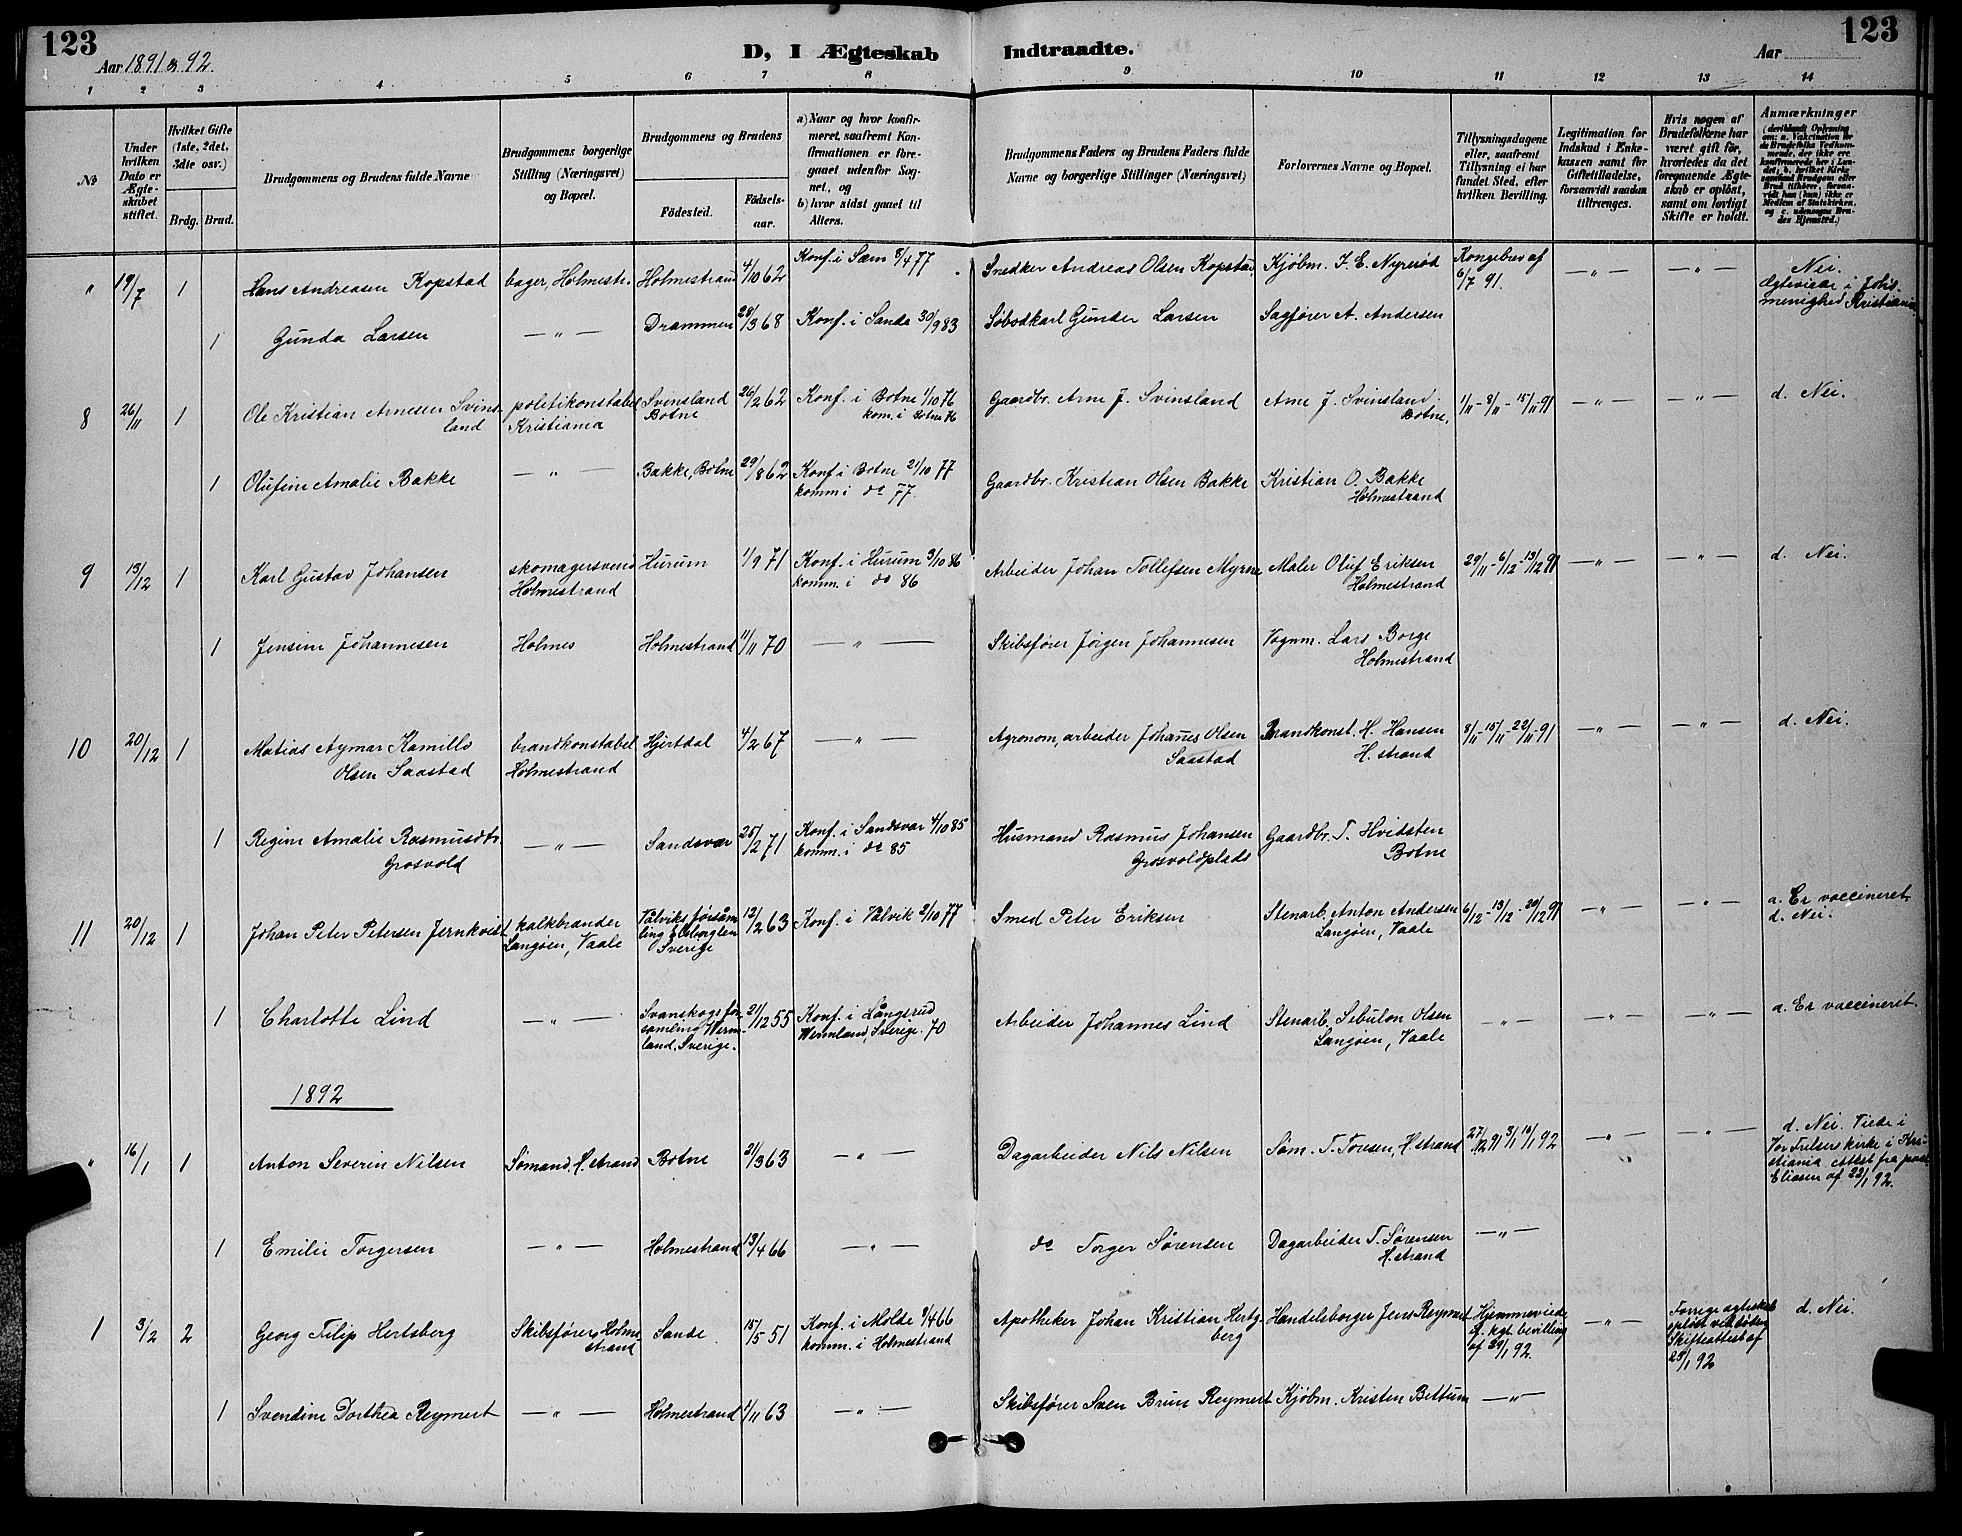 123
D, I Ægteskab Indtraadte.
123
Aar 1891 & 92.
Aar
1 2 3 4 5 6 7 8 9 10 11 12 13 14
No
Under hvilken Dato er Ægteskabet stiftet.
Hvilket Gifte (1ste, 2det, 3die osv.)
Brdg. Brud.
Brudgommens og Brudens fulde Navne
Brudgommens borgerlige Stilling (Næringsvei) og Bopæl.
Brudgommens og Brudens
Fødested. Fødselsaar.
a) Naar og hvor konfirmeret, saafremt Konfirmationen er foregaaet udenfor Sognet, og
b) hvor sidst gaaet til Alters.
Brudgommens Faders og Brudens Faders fulde Navne og borgerlige Stillinger (Næringsvei)
Forlovernes Navne og Bopæl.
Tillysningsdagene eller, saafremt Tillysning ei har fundet Sted, efter hvilken Bevilling.
Legitimation for Indskud i Enkekassen samt for Giftetilladelse, forsaavidt saadan tiltrænges.
Hvis nogen af Brudefolkene har været gift før, hvorledes da det foregaaende Ægteskab er opløst, samt om lovligt Skifte er holdt.
Anmærkninger
" 19/7 1 Hans Andreasen Kopstad bager, Holmestr. Holmestrand 4/10 62 Konf. i Sæm 8/4 77 Snedker Andreas Olsen Kopstad Kjøbm. J. E. Nyrerød Kongebrev af 6/7 91. — " — — " — Nei. Ægteviede i Johs. menighed Kristiania
1 Gunda Larsen — " — Drammen 28/3 68 Konf. i Sande 30/9 83 Søbodkarl Gunder Larsen Sagfører A. Andersen
8 26/11 1 Ole Kristian Arnesen Svinsland politikonstabel Kristiania Svinsland Botne 26/2 62 Konf. i Botne 1/10 76 kom. i Botne 76 Gaardbr. Arne J. Svinsland Arne J. Svinsland. Botne. 1/11 - 8/11 - 15/11 91 — " — — " — d. Nei.
1 Olufine Amalie Bakke — " — Bakke, Botne 29/8 62 Konf. i Botne 21/10 77 komm i do 77. Gaardbr. Kristian Olsen Bakke Kristian O. Bakke Holmestrand
9 13/12 1 Karl Gustav Johansen skomagersvend Holmestrand Hurum 1/9 71 Konf. i Hurum 3/10 86 komm. i do 86 Arbeider Johan Tollefsen Myrne Maler Oluf Eriksen Holmestrand 29/11 - 6/12 - 13/12 91 — " — — " — d. Nei.
1 Jensine Johannesen Holmes Holmestrand 11/11 70 — " — Skibsfører Jørgen Johannesen Vognm. Lars Borge Holmestrand
10 20/12 1 Matias Aymar Kamillo Olsen Saastad brandkonstabel Holmestrand Hjertdal 4/2 67 — " — Agronom, arbeider Johanes Olsen Saastad Brandkonst. H. Hansen H. strand 8/11 - 15/11 - 22/11 91 — " — — " — d. Nei.
1 Regine Amalie Rasmusdtr. Grosvold — " — Sandsvær 25/2 71 Konf. i Sandsvær 4/10 85 komm. i do 85 Husmand Rasmus Johansen Grosvoldplads Gaardbr. T. Hvitsten Botne
11 20/12 1 Johan Peter Petersen Jernkvist kalkbrander Langøen, Vaale Sverige 12/2 63 Konf. i Vålvik 2/10 77 Smed Peter Eriksen Stenarb. Anton Andersen Langøen, Vaale 6/12 - 13/12 - 20/12 91 — " — — " — a. Er vaccineret d. Nei.
1 Charlotte Lind — " — Svanskogs församling Wermland, Sverige. 21/12 55 Konf. i Långsrud Wermland, Sverige. 70 Arbeider Johannes Lind Stenarb. Sebulon Olsen Langøen, Vaale — " — — " — — " — a. Er vaccineret.
1892
" 16/1 1 Anton Severin Nilsen Sømand, H.strand Botne 21/3 63 — " — Dagarbeider Nils Nilsen Søm. T. Tonesen, H.strand 27/12 91 3/1 10/1 92 — " — — " — d. Nei. Viede i Vor Frelsers kirke i Kristiania Attest fra præst Eliasen af 22/1 92.
1 Emilie Torgersen — " — Holmestrand 13/4 66 — " — do Torger Sørensen Dagarbeider T. Sørensen H.strand — " —
1 3/2 2 Georg Filip Hertsberg Skibsfører, Holmestrand Sande. 15/5 51 Konf. i Molde 8/4 66 komm. i Holmestrand Apotheker Johan Kristian Hertzberg Handelsborger Jens Reymert Hjemmeviede e. kgl. bevilling af 29/1 92. — " — Forrige ægteskab opløst ved døden Skifteattest af 25/1 92 d. Nei.
1 Svendine Dorthea Reymert — " — Holmestrand 1/11 63 — " — Skibsfører Sven Brun Reymert Kjøbm. Kristen Bettum — " —